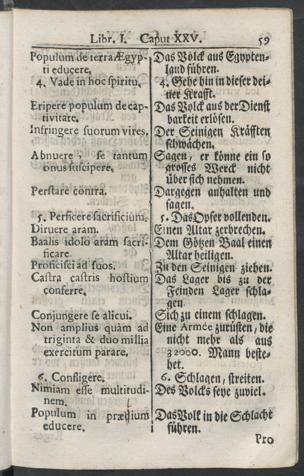 Libr. I. Caput XXV. 59
Populum de terra Ægyp-
ti educere.
4. Vade in hoc spiritu.
Eripere populum de cap-
tivitate.
Infringere suorum vires.
Abnuere, se tantum
onus suscipere.
Perstare contra.
5. Perficere sacrificium.
Diruere aram.
Baalis idolo aram sacri-
ficare.
Proficisci ad suos.
Castra castris hostium
conferre.
Conjungere se alicui.
Non amplius quàm ad
triginta & duo millia
exercitum parare.
6. Confligere.
Nimiam esse multitudi-
nem.
Populum in prælium
educere.
Das Volck aus Egypten-
land führen.
4. Gehe hin in dieser dei-
ner Krafft.
Das Volck aus der Dienst
barkeit erlösen.
Der Seinigen Kräfften
schwächen.
Sagen, er könne ein so
grosses Werck nicht
über sich nehmen.
Dargegen anhalten und
sagen.
5. Das Opfer vollenden.
Einen Altar zerbrechen.
Dem Götzen Baal einen
Altar heiligen.
Zu den Seinigen ziehen.
Das Lager bis zu der
Feinden Lager schla-
gen.
Sich zu einem schlagen.
Eine Armée zurüsten, die
nicht mehr als aus
32000. Mann beste-
het.
6. Schlagen, streiten.
Des Volcks seye zuviel.
Das Volk in die Schlacht
führen.
Pro